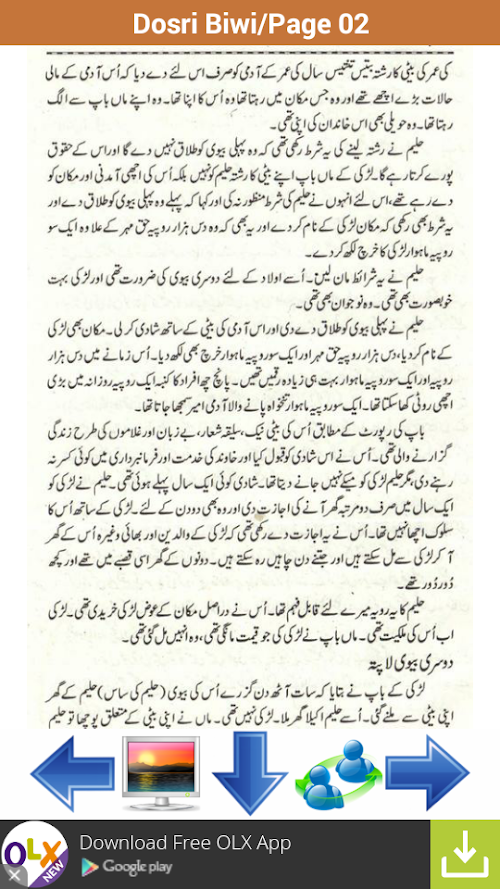 Dosri Biwi/Page 02
کی عمر کی بیٹی کا رشتہ بتیس تینتیس سال کی عمر کے آدمی کو صرف اس لئے دے دیا کہ اُس آدمی کے مالی
حالات بڑے اچھے تھے اور وہ جس مکان میں رہتا تھا وہ اُس کا اپنا تھا۔ وہ اپنے ماں باپ سے الگ
رہتا تھا۔ وہ حویلی بھی اس خاندان کی اپنی تھی۔
حلیم نے رشتہ لینے کی یہ شرط رکھی تھی کہ وہ پہلی بیوی کو طلاق نہیں دے گا اور اس کے حقوق
پورے کرتا رہے گا۔ لڑکی کے ماں باپ اپنے بیٹی کا رشتہ حلیم کو نہیں بلکہ اُس کی اچھی آمدنی اور مکان کو
دے رہے تھے، اس لئے انہوں نے حلیم کی شرط منظور نہ کی اور کہا کہ پہلے وہ پہلی بیوی کو طلاق دے اور
یہ شرط بھی رکھی کہ مکان لڑکی کے نام کر دے اور یہ بھی کہ وہ دس ہزار روپیہ حق مہر کے علاوہ ایک سو
روپیہ ماہوار لڑکی کا خرچ لکھ کر دے۔
حلیم نے یہ شرائط مان لیں۔ اُسے اولاد کے لئے دوسری بیوی کی ضرورت تھی اور لڑکی بہت
خوبصورت بھی تھی۔ وہ نوجوان بھی تھی۔
حلیم نے پہلی بیوی کو طلاق دے دی اور اس آدمی کی بیٹی کے ساتھ شادی کر لی۔ مکان بھی لڑکی
کے نام کر دیا، دس ہزار روپیہ حق مہر اور ایک سو روپیہ ماہوار خرچ بھی لکھ دیا۔ اُس زمانے میں دس ہزار
روپیہ اور ایک سو روپیہ ماہوار بہت ہی زیادہ رقمیں تھیں۔ پانچ چھ افراد کا کنبہ ایک روپیہ روزانہ میں بڑی
اچھی روٹی کھا سکتا تھا۔ ایک سو روپیہ ماہوار تنخواہ پانے والا آدمی امیر سمجھا جاتا تھا۔
باپ کی رپورٹ کے مطابق اُس کی بیٹی نیک، سلیقہ شعار، بے زبان اور غلاموں کی طرح زندگی
گزارنے والی تھی۔ اُس نے اس شادی کو قبول کیا اور خاوند کی خدمت اور فرمانبرداری میں کوئی کسر نہ
رہنے دی مگر حلیم لڑکی کو میکے نہیں جانے دیتا تھا۔ شادی کوئی ایک سال پہلے ہوئی تھی۔ حلیم نے لڑکی کو
ایک سال میں صرف دو مرتبہ گھر آنے کی اجازت دی اور وہ بھی دو دن کے لئے۔ لڑکی کے ساتھ اُس کا
سلوک اچھا نہیں تھا۔ اُس نے یہ اجازت دے رکھی تھی کہ لڑکی کے والدین اور بھائی وغیرہ اُس کے گھر
آ کر لڑکی سے مل سکتے ہیں اور جتنے دن چاہیں رہ سکتے ہیں۔ دونوں کے گھر اسی قصبے میں تھے اور کچھ
دُور دُور تھے۔
حلیم کا یہ رویہ میرے لئے قابل فہم تھا۔ اُس نے دراصل مکان کے عوض لڑکی خریدی تھی۔ لڑکی
اب اُس کی ملکیت تھی۔ ماں باپ نے لڑکی کی جو قیمت مانگی تھی، وہ انہیں مل گئی تھی۔
دوسری بیوی لاپتہ
لڑکی کے باپ نے بتایا کہ سات آٹھ دن گزرے اُس کی بیوی (حلیم کی ساس) حلیم کے گھر
اپنی بیٹی سے ملنے گئی۔ اُسے حلیم اکیلا گھر ملا۔ لڑکی نہیں تھی۔ ماں نے اپنی بیٹی کے متعلق پوچھا تو حلیم
OLX
NEW
Download Free OLX App
Google play